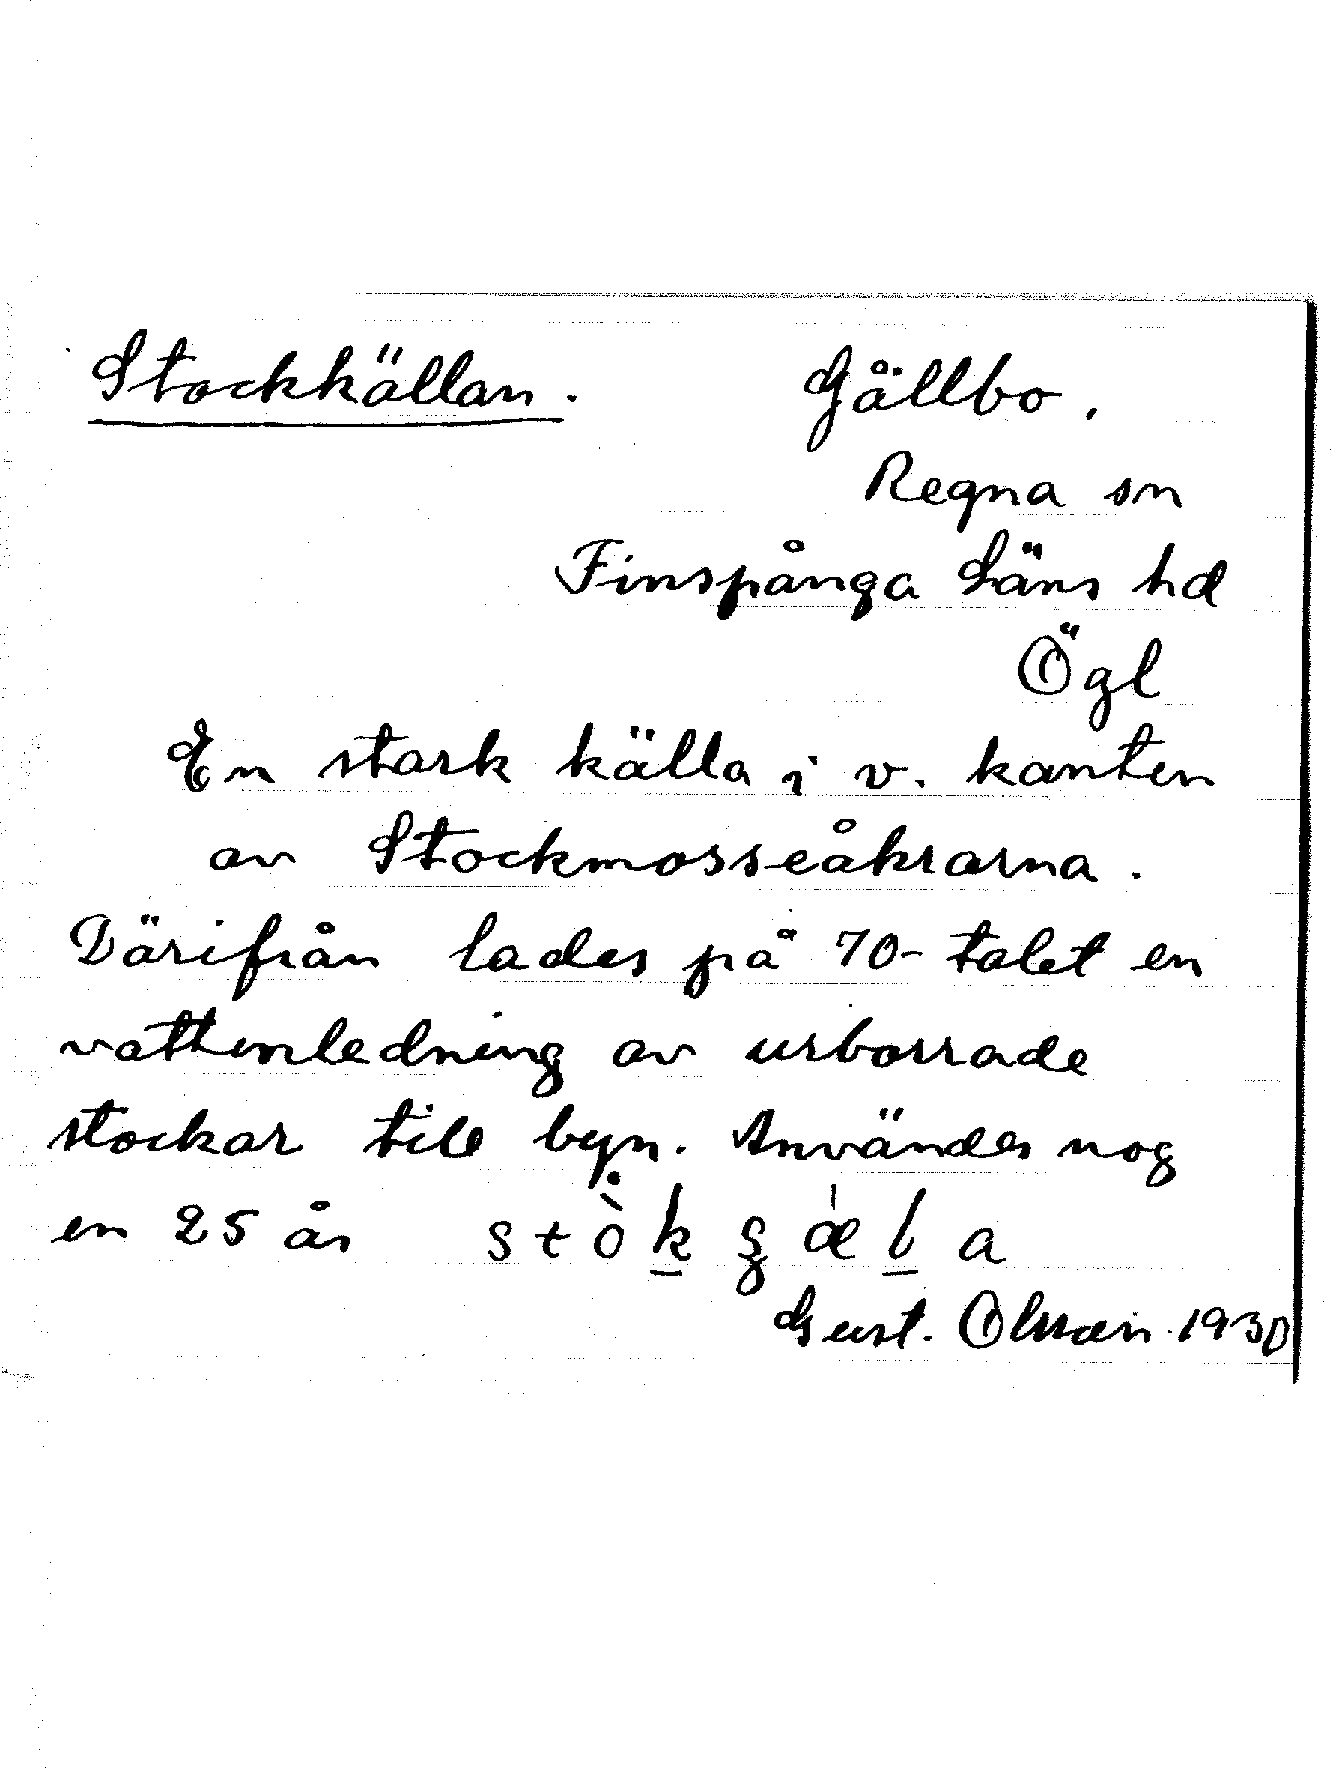 Stockkällan. Gällbo.
Regna sn
Finspånga Läns hd
Ögl
En stark källa i v. kanten
av Stockmosseåkrarna.
Därifrån lades på 70-talet en
vattenledning av urborrade
stockar till byn. Användes nog
en 25 år stòk̲ȿǽl̲a
Gust. Olsson 1930